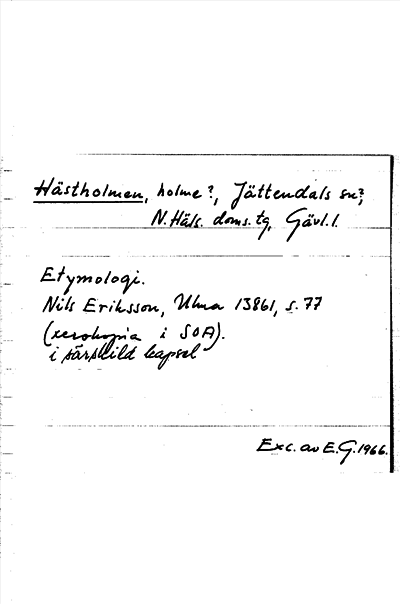 Hästholmen, holme?, Jättendals sn?,
N. Häls. doms. tg, Gävl. l.
Etymologi.
Nils Eriksson, Ulma 13861, s. 77
(xerokopia i SOA).
i särskild kapsel
Exc. av E.G. 1966.